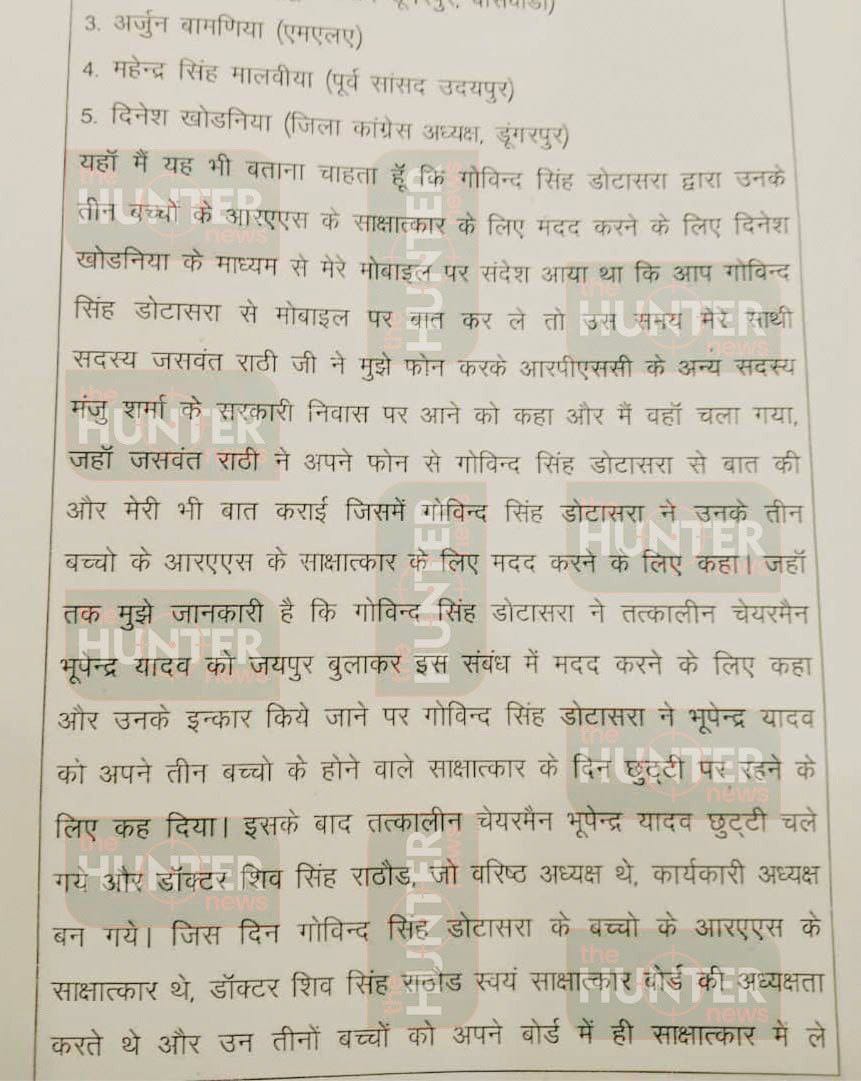 डूंगरपुर, बांसवाडा)
3. अर्जुन बामणिया (एमएलए)
4. महेन्द्र सिंह मालवीया (पूर्व सांसद उदयपुर)
5. दिनेश खोडनिया (जिला कांग्रेस अध्यक्ष, डूंगरपुर)
यहॉ मैं यह भी बताना चाहता हूॅ कि गोविन्द सिंह डोटासरा द्वारा उनके
तीन बच्चो के आरएएस के साक्षात्कार के लिए मदद करने के लिए दिनेश
खोडनिया के माध्यम से मेरे मोबाइल पर संदेश आया था कि आप गोविन्द
सिंह डोटासरा से मोबाइल पर बात कर ले तो उस समय मेरे साथी
सदस्य जसवंत राठी जी ने मुझे फोन करके आरपीएससी के अन्य सदस्य
मंजु शर्मा के सरकारी निवास पर आने को कहा और मैं वहॉ चला गया,
जहॉ जसवंत राठी ने अपने फोन से गोविन्द सिंह डोटासरा से बात की
और मेरी भी बात कराई जिसमें गोविन्द सिंह डोटासरा ने उनके तीन
बच्चो के आरएएस के साक्षात्कार के लिए मदद करने के लिए कहा। जहॉ
तक मुझे जानकारी है कि गोविन्द सिंह डोटासरा ने तत्कालीन चेयरमैन
भूपेन्द्र यादव को जयपुर बुलाकर इस संबंध में मदद करने के लिए कहा
और उनके इन्कार किये जाने पर गोविन्द सिंह डोटासरा ने भूपेन्द्र यादव
को अपने तीन बच्चो के होने वाले साक्षात्कार के दिन छुट्टी पर रहने के
लिए कह दिया। इसके बाद तत्कालीन चेयरमैन भूपेन्द्र यादव छुट्टी चले
गये और डॉक्टर शिव सिंह राठौड, जो वरिष्ठ अध्यक्ष थे, कार्यकारी अध्यक्ष
बन गये। जिस दिन गोविन्द सिंह डोटासरा के बच्चो के आरएएस के
साक्षात्कार थे, डॉक्टर शिव सिंह राठौड स्वयं साक्षात्कार बोर्ड की अध्यक्षता
करते थे और उन तीनों बच्चों को अपने बोर्ड में ही साक्षात्कार में ले
the HUNTER news